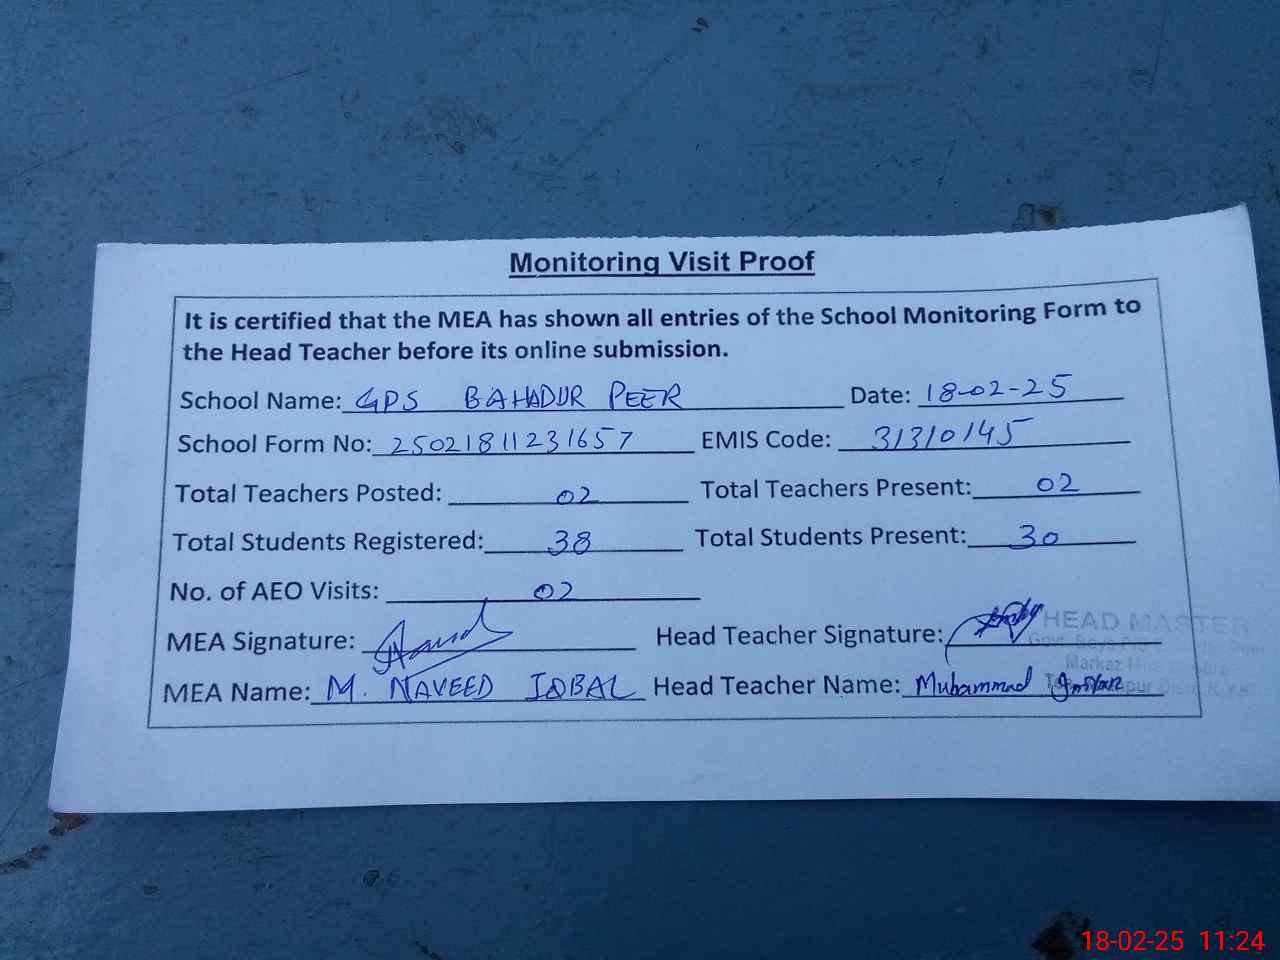 Monitoring Visit Proof
It is certified that the MEA has shown all entries of the School Monitoring Form to
the Head Teacher before its online submission.
School Name: GPS BAHADUR PEER Date: 18-02-25
School Form No: 25021811231657 EMIS Code: 31310145
Total Teachers Posted: 02 Total Teachers Present: 02
Total Students Registered: 38 Total Students Present: 30
No. of AEO Visits: 02
MEA Signature: Head Teacher Signature: HEAD MASTER
Govt. Boys
Markaz
MEA Name: M. NAVEED IQBAL Head Teacher Name: Muhammad Imran
18-02-25 11:24